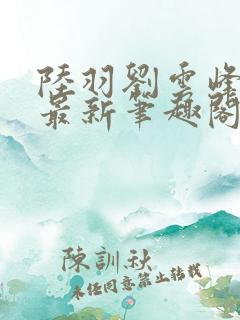 陸羽劉雲峰
最新筆趣閣
陳訓秋
未經同意禁止轉載